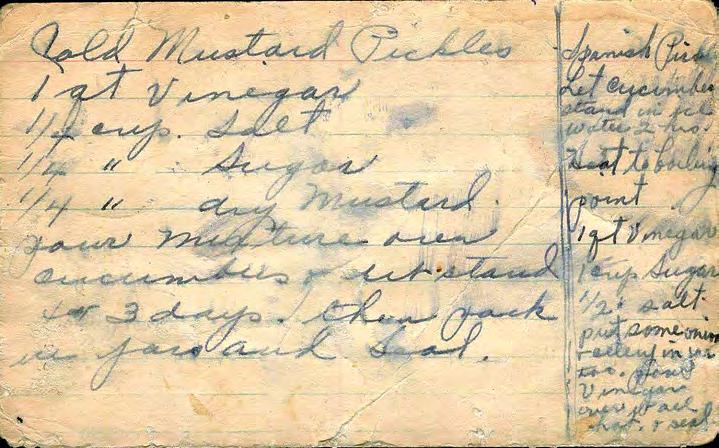 Cold Mustard Pickles
1 qt Vinegar
1/2 cup. Salt
1/4 " Sugar
1/4 " dry Mustard.
pour mixture over
cucumbers & let stand
for 3 days. then pack
in jars and Seal.
Spanish Pick
Let cucumbe
stand in ice
water 2 hrs.
Heat to boiling
point.
1 qt Vinegar
1 cup Sugar
1/2 " salt
put some onion
& celery in jar
too. pour
Vinegar
over it all
hot. & seal